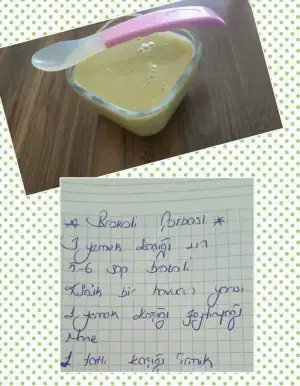 * Brokoli Çorbası *
1 yemek kaşığı un
5-6 sap brokoli
Küçük bir havuç yarısı
1 yemek kaşığı zeytinyağı
Nane
1 tatlı kaşığı irmik